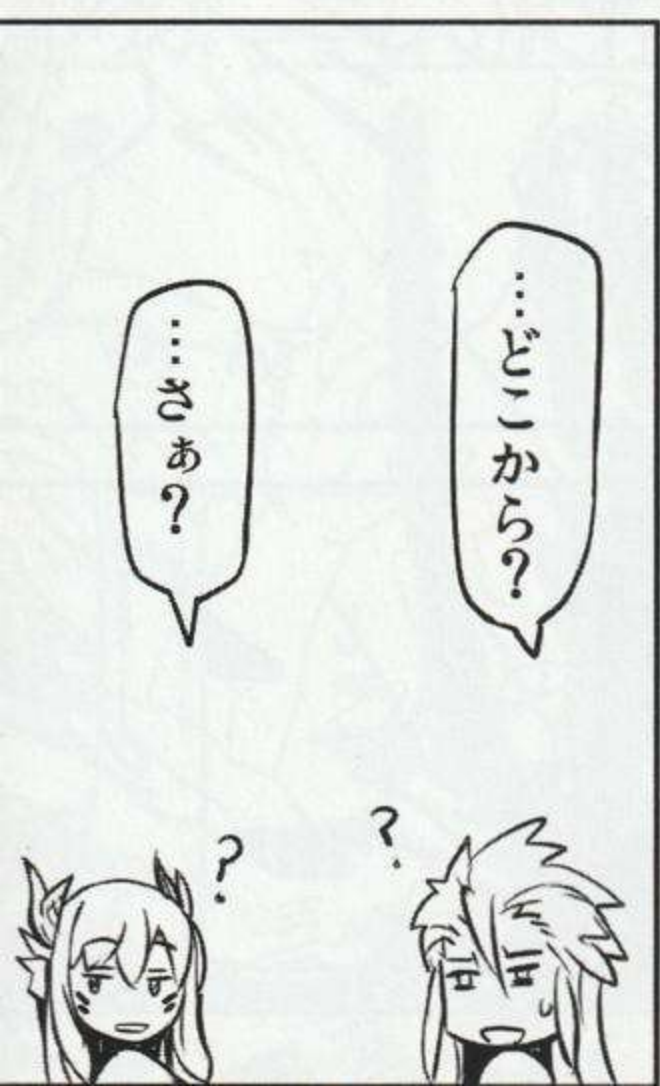 …どこから?
…さぁ?
?
?